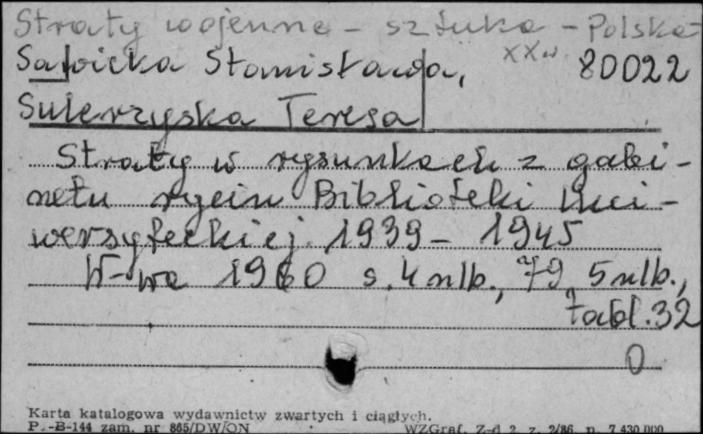 Straty wojenne - sztuka - Polska -
XX w
Sawicka Stanisława, 80022
Sulerzyska Teresa
Straty w rysunkach z gabi-
netu rycin Biblioteki Uni-
wersyteckiej 1939 - 1945
W-wa 1960 s. 4 nlb., 79, 5 nlb.,
tabl. 32
0
Karta katalogowa wydawnictw zwartych i ciągłych.
P.-B-144 zam. nr 865/DW/ON WZGraf. Z-d 2, z. 2/86, n. 7 430 000